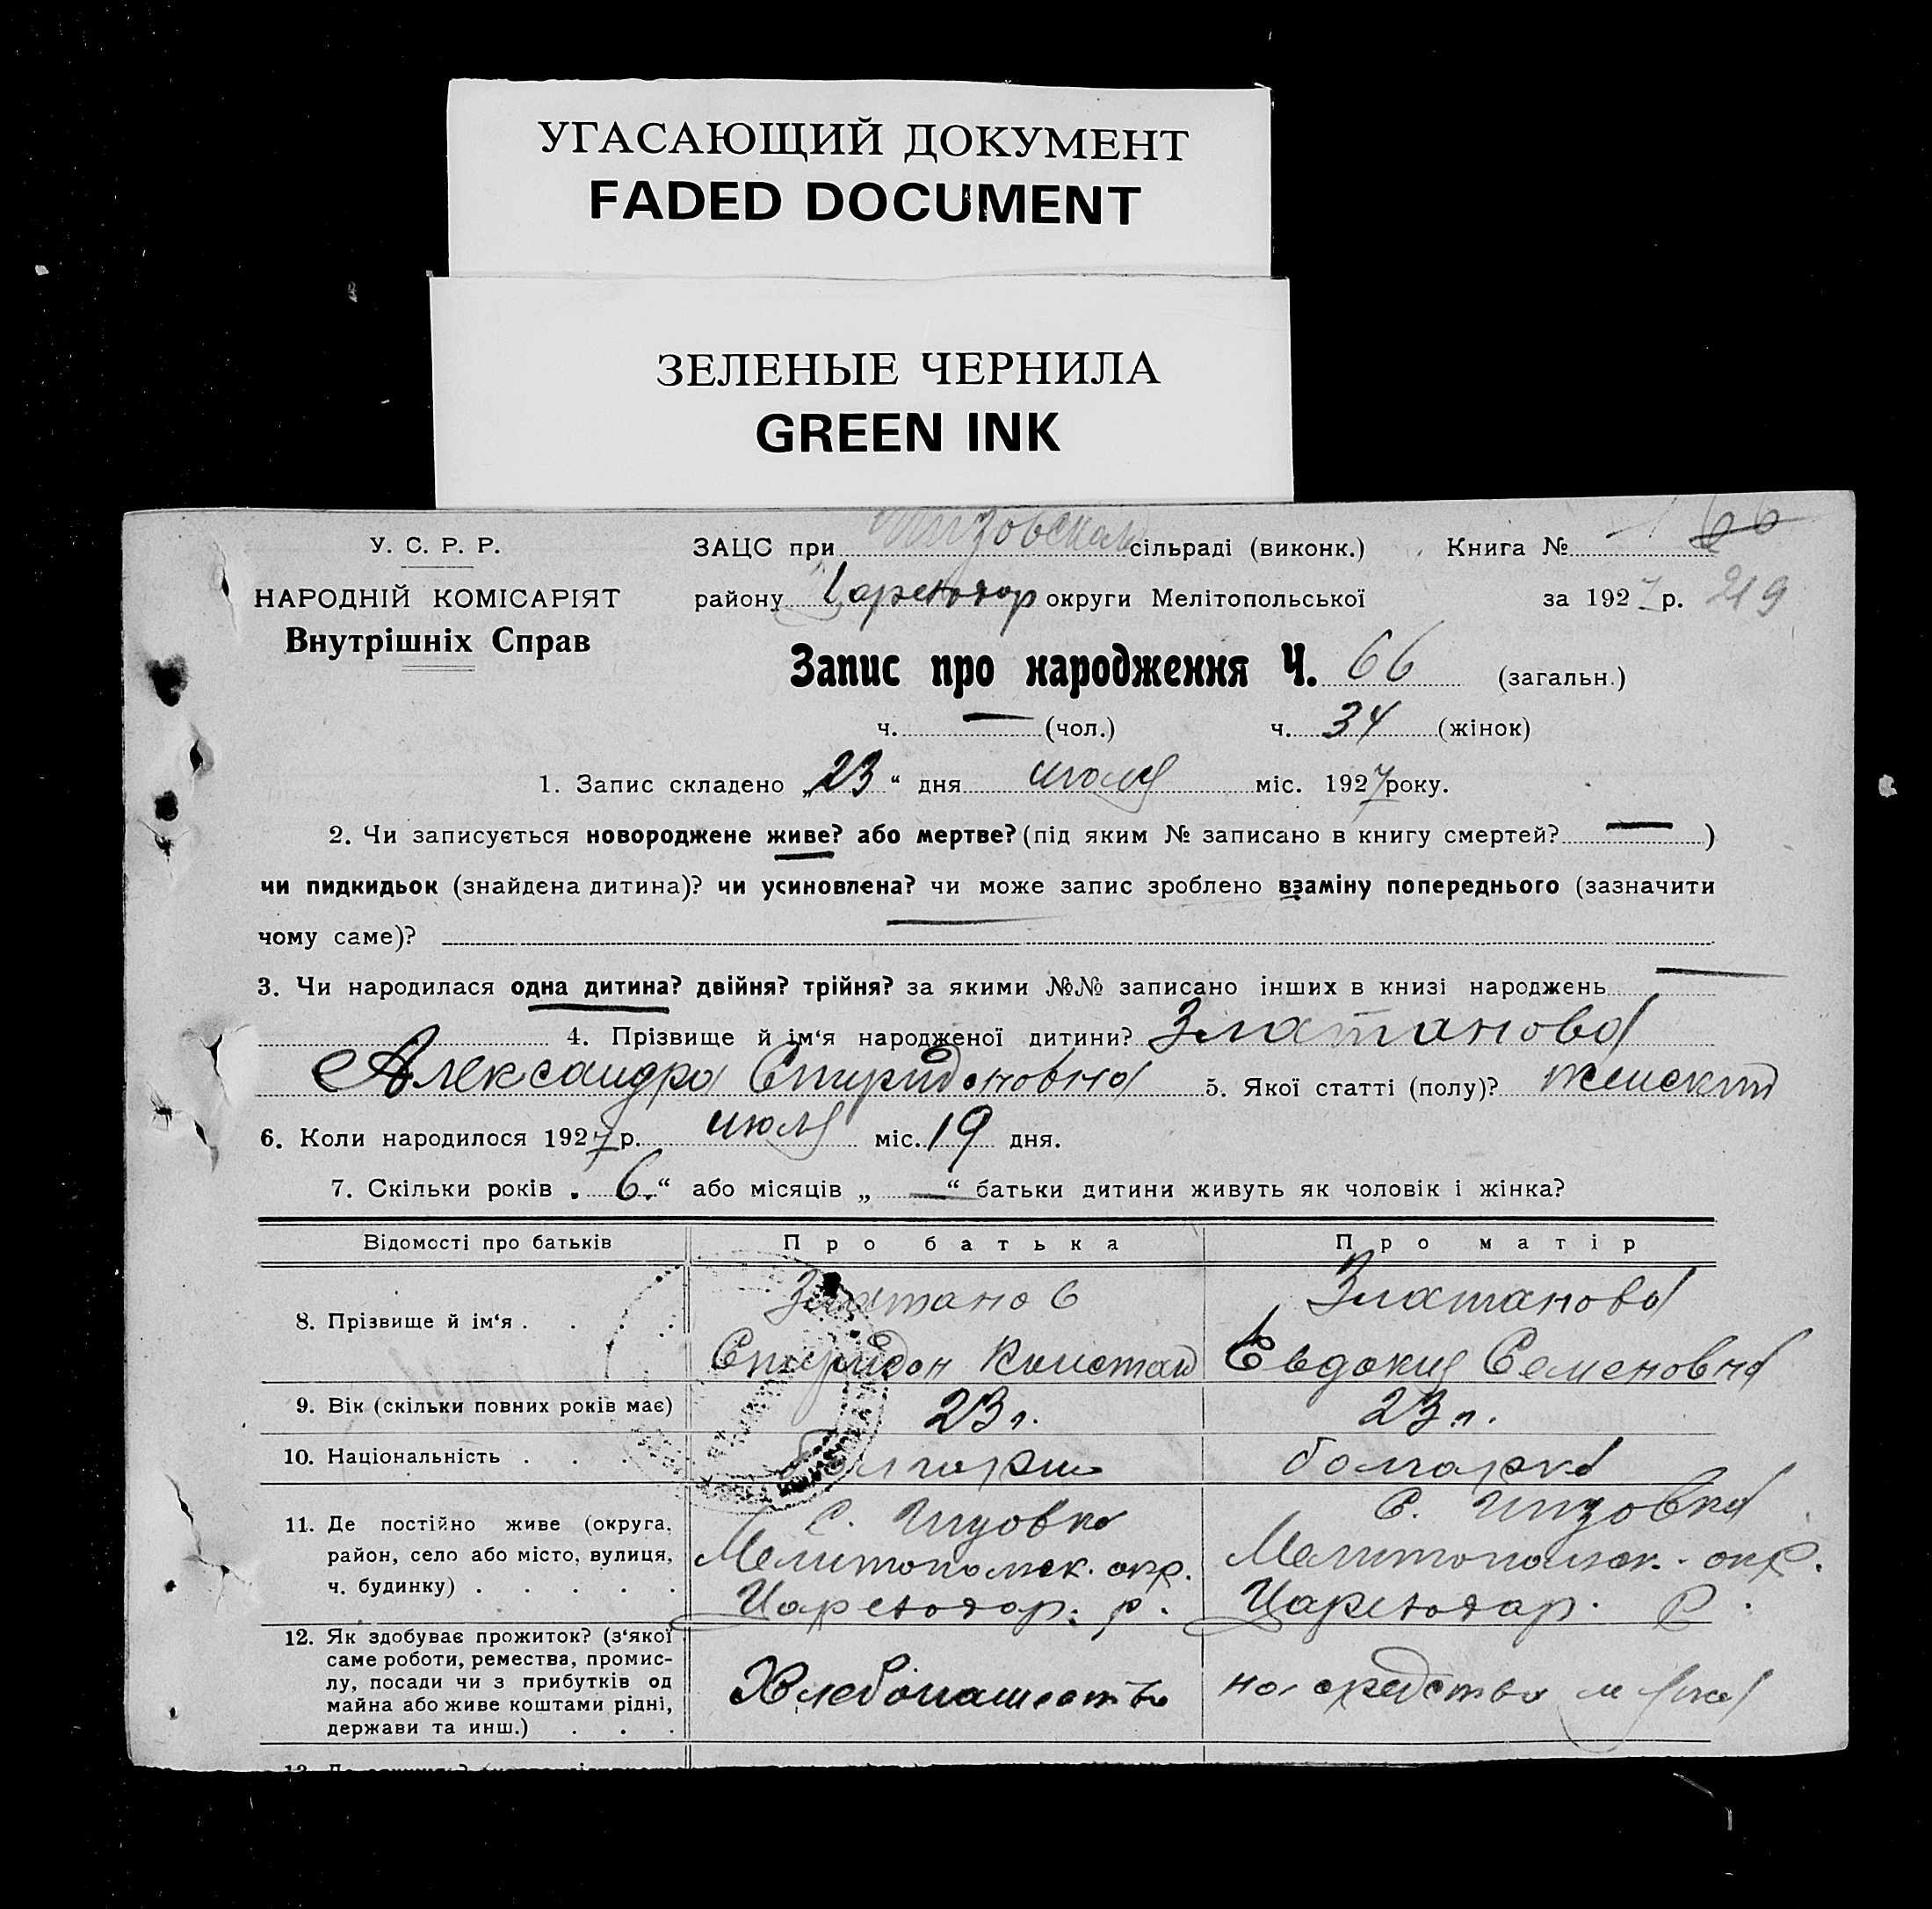 УГАСАЮЩИЙ ДОКУМЕНТ
FADED DOCUMENT
ЗЕЛЕНЫЕ ЧЕРНИЛА
GREEN INK
У. С. Р. Р.
НАРОДНІЙ КОМІСАРІЯТ
Внутрішніх Справ
ЗАЦС при сільраді (виконк.) Книга № 66
району Цареводар округи Мелітопольської за 1927 р. 219
Запис про народження Ч. 66 (загальн.)
ч. — (чол.) ч. 34 (жінок)
1. Запис складено „23“ дня июля міс. 1927 року.
2. Чи записується новороджене живе? або мертве? (під яким № записано в книгу смертей? — )
чи пидкидьок (знайдена дитина)? чи усиновлена? чи може запис зроблено взаміну попереднього (зазначити
чому саме)? —
3. Чи народилася одна дитина? двійня? трійня? за якими №№ записано інших в книзі народжень —
4. Прізвище й ім‘я народженої дитини? Златанова
Александра Спиридоновна 5. Якої статті (полу)? женский
6. Коли народилося 1927 р. июля міс. 19 дня.
7. Скільки років „6.“ або місяців „—“ батьки дитини живуть як чоловік і жінка?
Відомості про батьків Про батька Про матір
8. Прізвище й ім‘я . . Златанов Златанова
Спиридон Констан Евдокия Семеновна
9. Вік (скільки повних років має) 23 л. 23 л.
10. Національність . . . болгарин болгарка
11. Де постійно живе (округа, с. Инзовка с. Инзовка
район, село або місто, вулиця, Мелитопольск. окр. Мелитопольск. окр.
ч. будинку) . . . . . Цареводар. р. Цареводар. р.
12. Як здобуває прожиток? (з‘якої
саме роботи, ремества, промис-
лу, посади чи з прибутків од Хлебопашество на средства мужа
майна або живе коштами рідні,
держави та инш.) . . .